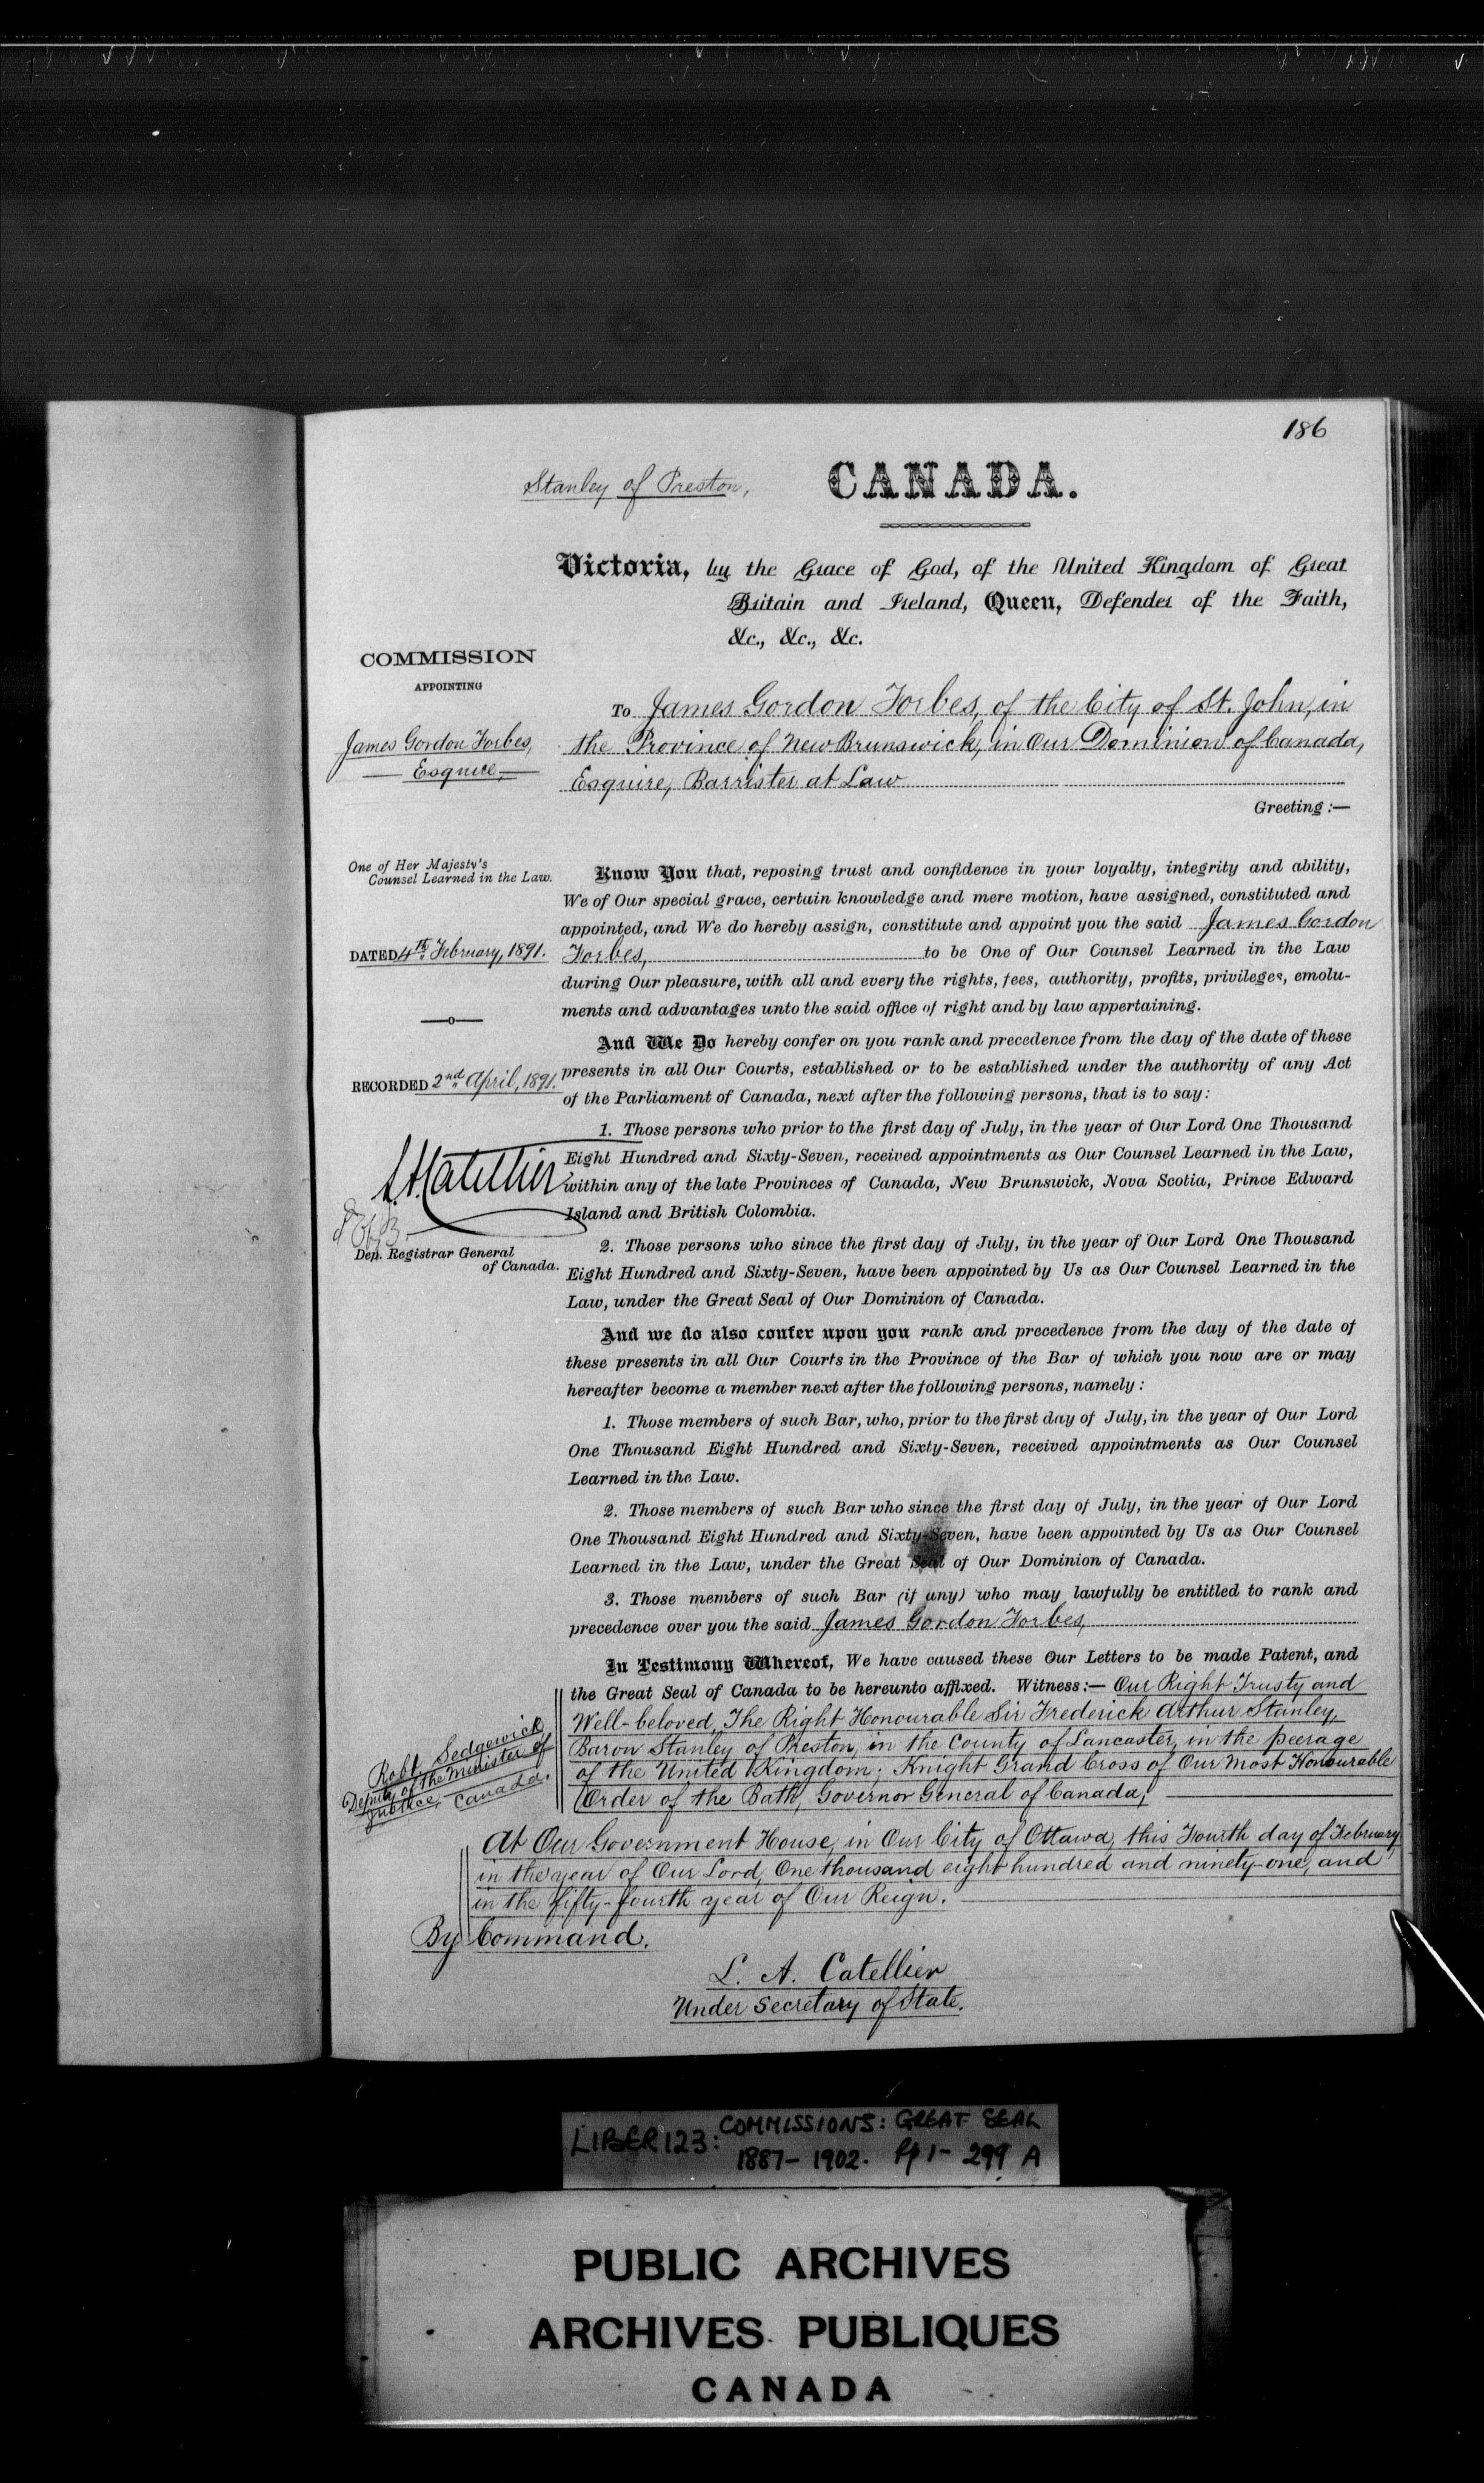 186
Stanley of Preston,
CANADA.
Victoria, by the Grace of God, of the United Kingdom of Great
Britain and Ireland, Queen, Defender of the Faith,
&c., &c., &c.
COMMISSION
APPOINTING
James Gordon Forbes,
Esquire,
To James Gordon Forbes, of the City of St. John, in
the Province of New Brunswick, in Our Dominion of Canada,
Esquire, Barrister at Law
Greeting :—
One of Her Majesty's
Counsel Learned in the Law.
DATED 4th February, 1891.
RECORDED 2nd April, 1891.
L.A. Catellier
Dep. Registrar General
of Canada.
Know You that, reposing trust and confidence in your loyalty, integrity and ability,
We of Our special grace, certain knowledge and mere motion, have assigned, constituted and
appointed, and We do hereby assign, constitute and appoint you the said James Gordon
Forbes, to be One of Our Counsel Learned in the Law
during Our pleasure, with all and every the rights, fees, authority, profits, privileges, emolu-
ments and advantages unto the said office of right and by law appertaining.
And We Do hereby confer on you rank and precedence from the day of the date of these
presents in all Our Courts, established or to be established under the authority of any Act
of the Parliament of Canada, next after the following persons, that is to say:
1. Those persons who prior to the first day of July, in the year of Our Lord One Thousand
Eight Hundred and Sixty-Seven, received appointments as Our Counsel Learned in the Law,
within any of the late Provinces of Canada, New Brunswick, Nova Scotia, Prince Edward
Island and British Colombia.
2. Those persons who since the first day of July, in the year of Our Lord One Thousand
Eight Hundred and Sixty-Seven, have been appointed by Us as Our Counsel Learned in the
Law, under the Great Seal of Our Dominion of Canada.
And we do also confer upon you rank and precedence from the day of the date of
these presents in all Our Courts in the Province of the Bar of which you now are or may
hereafter become a member next after the following persons, namely :
1. Those members of such Bar, who, prior to the first day of July, in the year of Our Lord
One Thousand Eight Hundred and Sixty-Seven, received appointments as Our Counsel
Learned in the Law.
2. Those members of such Bar who since the first day of July, in the year of Our Lord
One Thousand Eight Hundred and Sixty-Seven, have been appointed by Us as Our Counsel
Learned in the Law, under the Great Seal of Our Dominion of Canada.
3. Those members of such Bar (if any) who may lawfully be entitled to rank and
precedence over you the said James Gordon Forbes,
In Testimony Whereof, We have caused these Our Letters to be made Patent, and
the Great Seal of Canada to be hereunto affixed. Witness:— Our Right Trusty and
Well-beloved, The Right Honourable Sir Frederick Arthur Stanley,
Baron Stanley of Preston, in the County of Lancaster, in the peerage
of the United Kingdom; Knight Grand Cross of Our Most Honourable
Order of the Bath, Governor General of Canada,
Robt. Sedgewick
Deputy of the Minister of
Justice, Canada.
At Our Government House, in Our City of Ottawa, this Fourth day of February
in the year of Our Lord, One thousand eight hundred and ninety-one, and
in the fifty-fourth year of Our Reign.
By Command.
L. A. Catellier
Under Secretary of State.
LIBER 123: COMMISSIONS: GREAT SEAL
1887- 1902. Pp 1- 299 A
PUBLIC ARCHIVES
ARCHIVES PUBLIQUES
CANADA